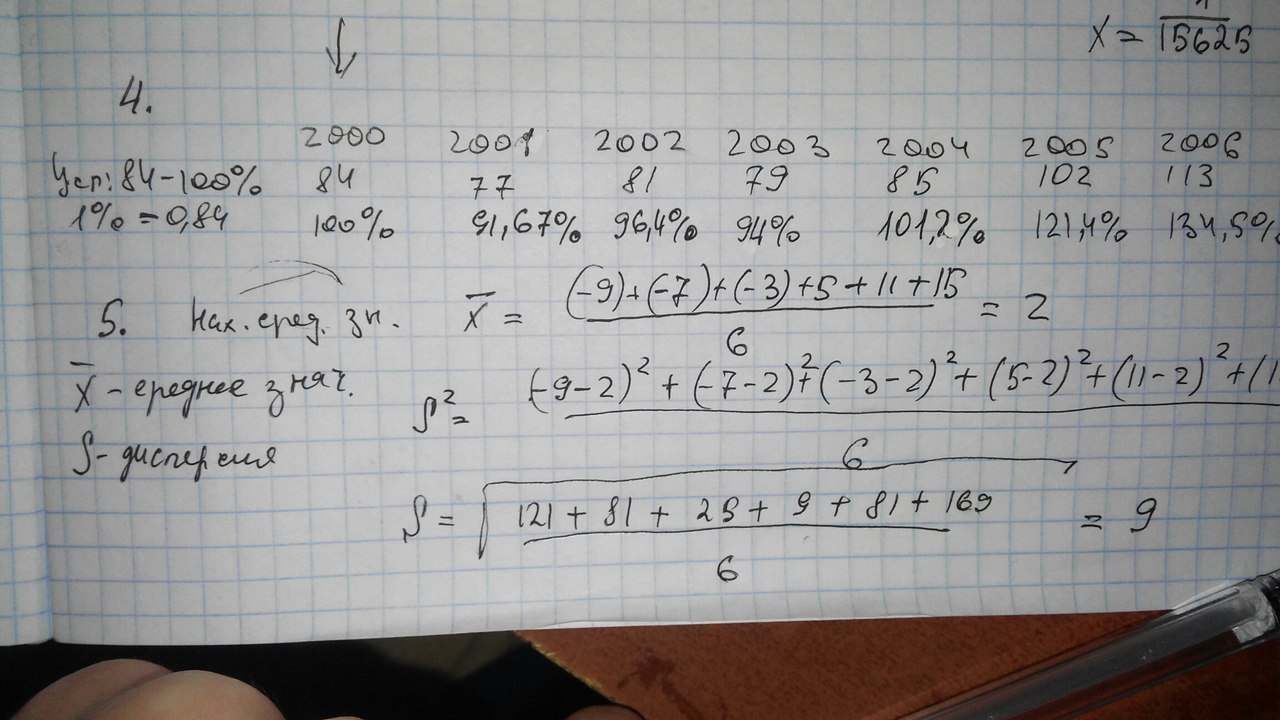 X = 1/15625
4.
2000 2001 2002 2003 2004 2005 2006
Усл: 84-100% 84 77 81 79 85 102 113
1% = 0,84 100% 91,67% 96,4% 94% 101,2% 121,4% 134,5%
5. Нах. сред. зн. X̄ = ((-9)+(-7)+(-3)+5+11+15)/6 = 2
X̄ - среднее знач.
S² = (-9-2)²+(-7-2)²+(-3-2)²+(5-2)²+(11-2)²+(1
6
S - дисперсия
S = √((121+81+25+9+81+169)/6) = 9